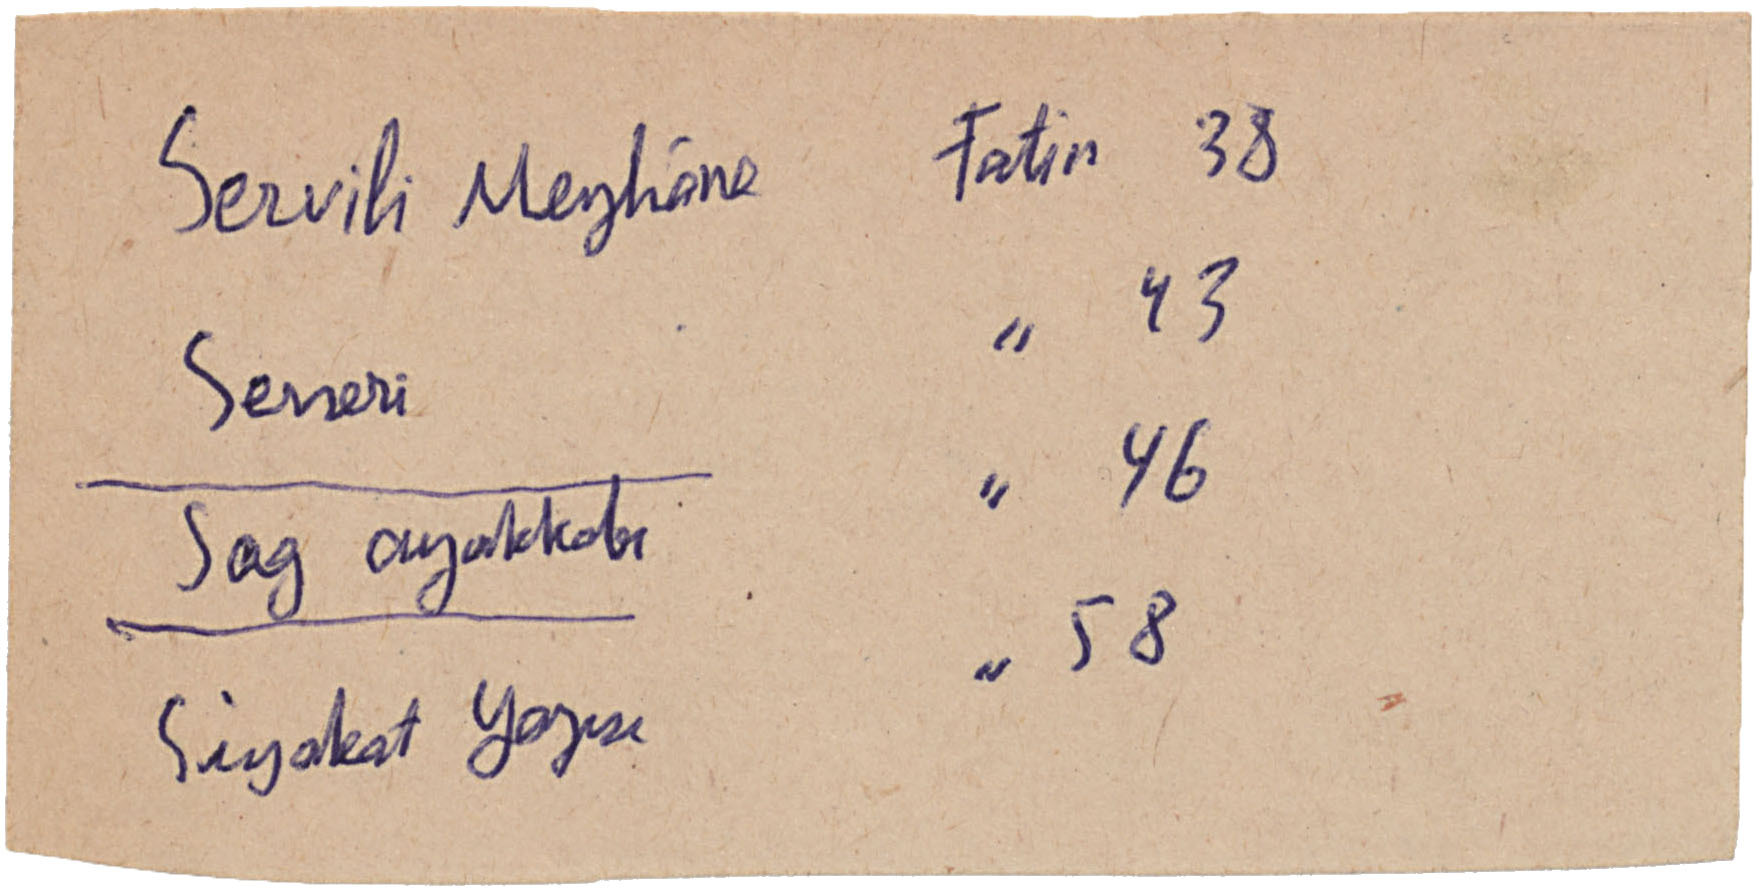 Servili Meyhâne Fatin 38
Serseri " 43
Sag ayakkabı " 46
Siyakat Yazısı " 58